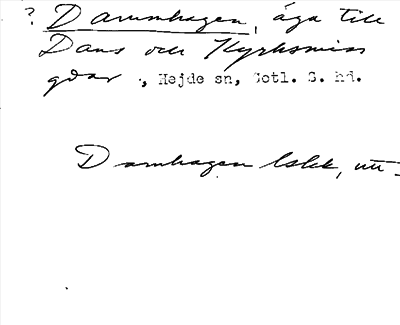 ? Dammhagen, äga till
Dans och Kyrkomiss
gdar ., Hejde sn, Gotl. S. hd.
Damhagen lskk, utt.